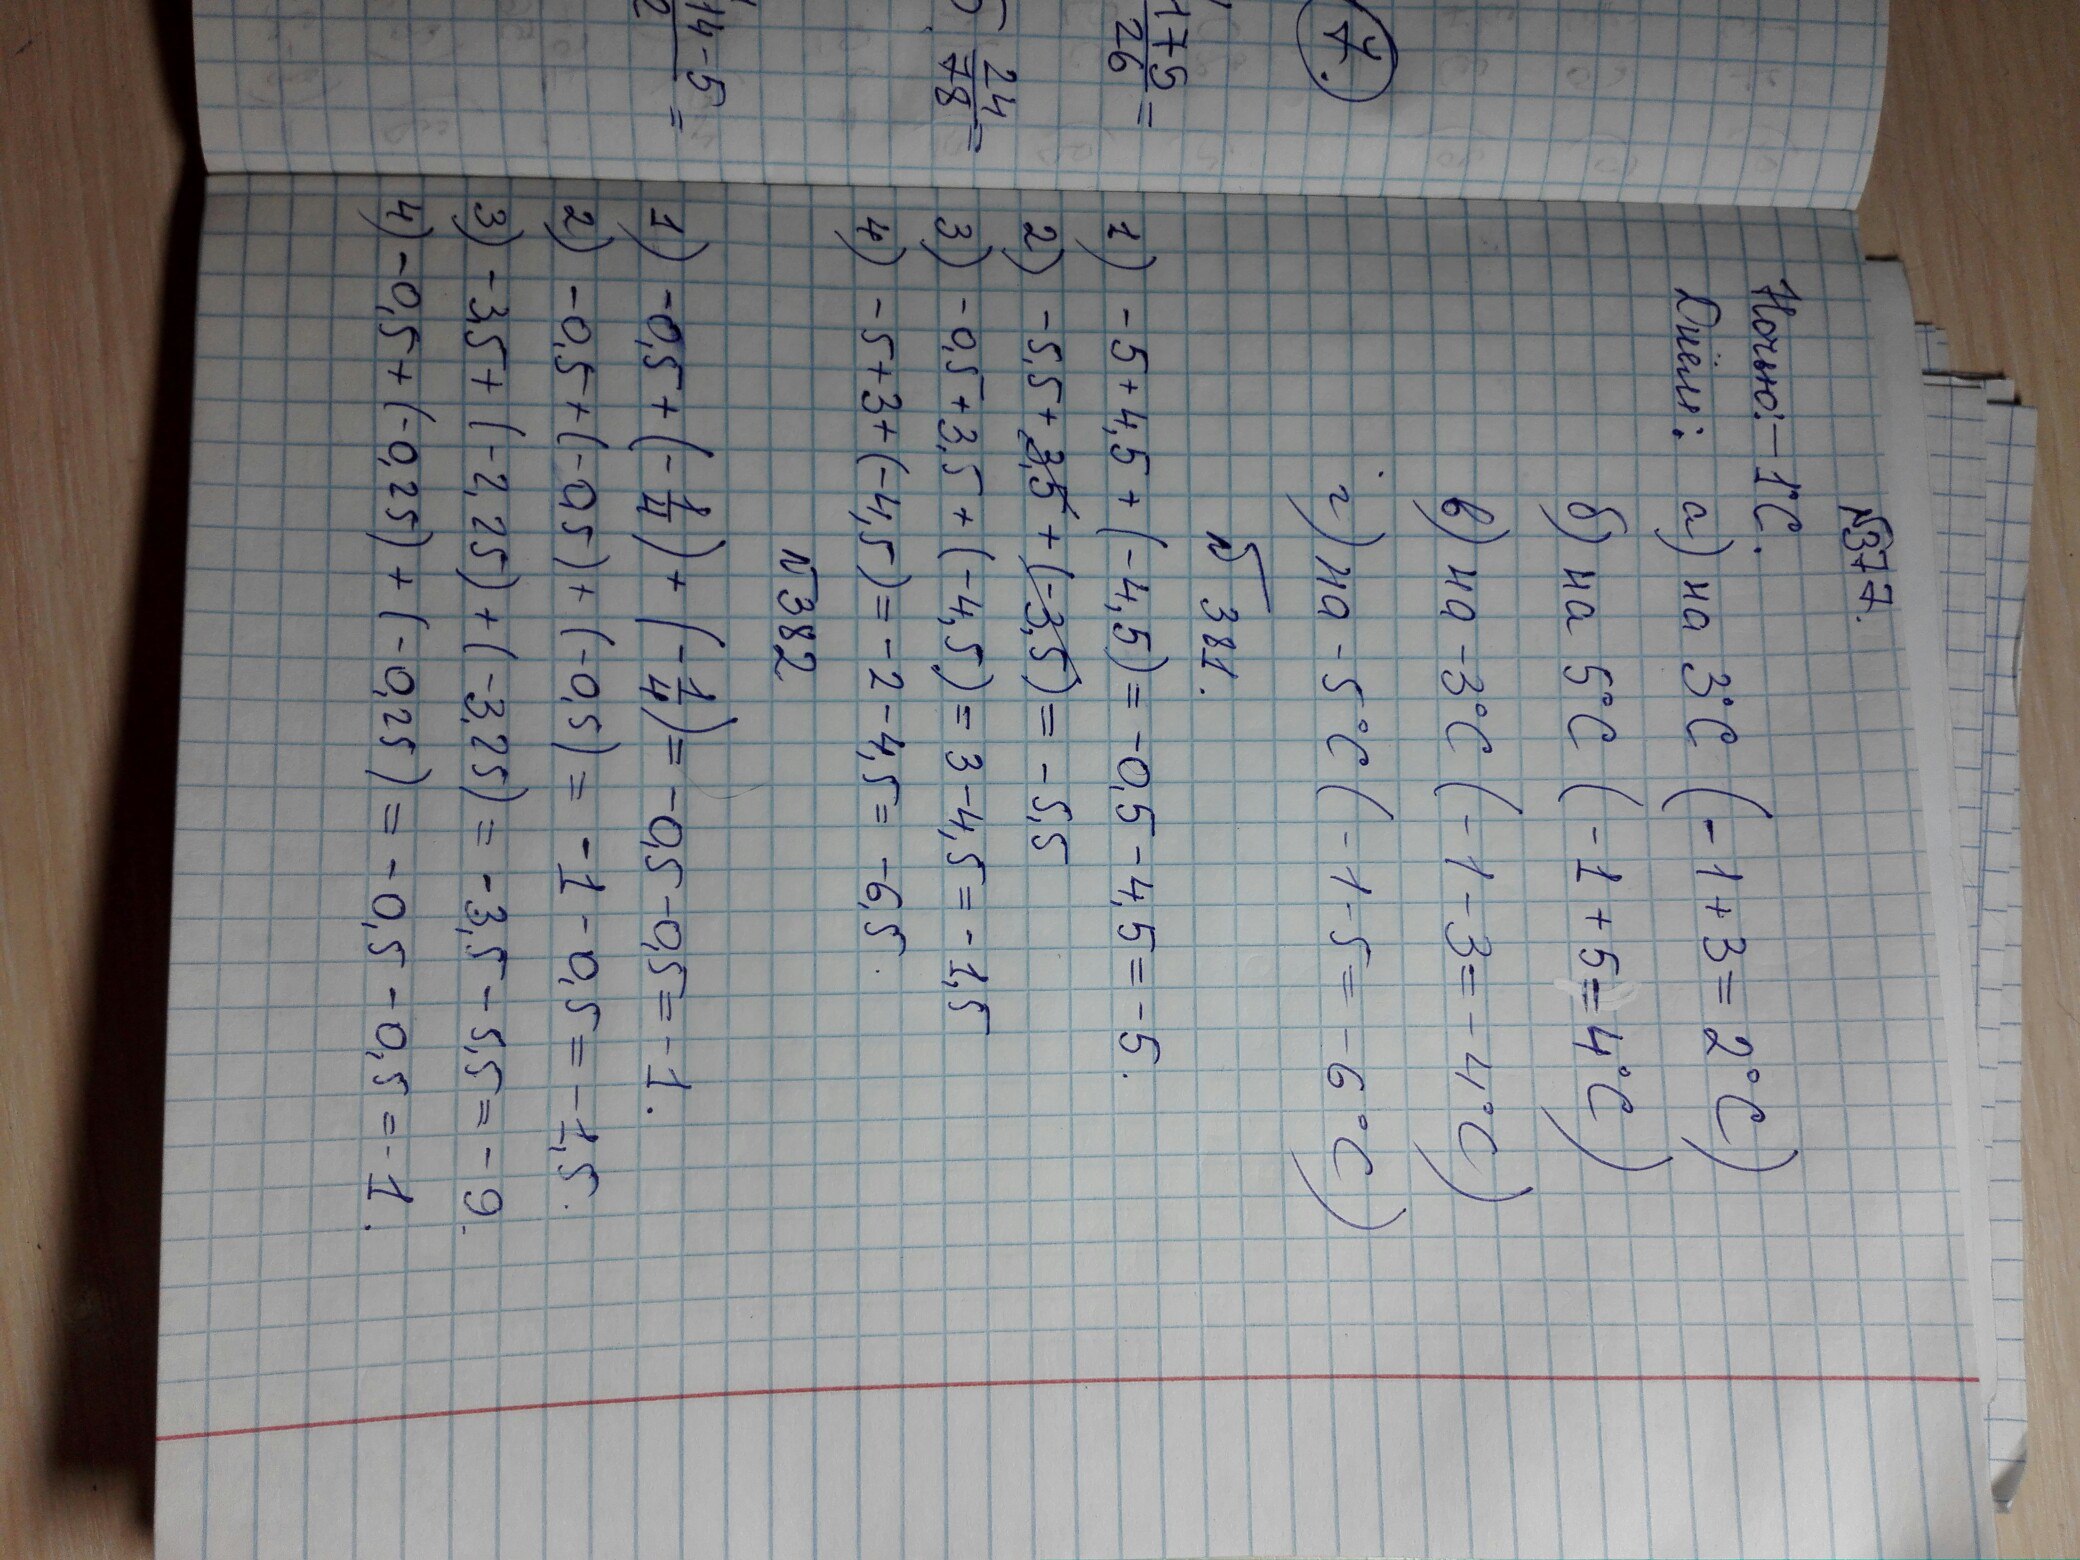 7.
175/26 =
5 24/78 =
14-5 =
№377.
Ночью: -1°C.
Днём: а) на 3°C (-1+3=2°C)
б) на 5°C (-1+5=4°C)
в) на -3°C (-1-3=-4°C)
г) на -5°C (-1-5=-6°C)
№381.
1) -5+4,5+(-4,5)=-0,5-4,5=-5.
2) -5,5+3,5+(-3,5)=-5,5
3) -0,5+3,5+(-4,5)=3-4,5=-1,5
4) -5+3+(-4,5)=-2-4,5=-6,5.
№382
1) -0,5+(-1/4)+(-1/4)=-0,5-0,5=-1.
2) -0,5+(-0,5)+(-0,5)=-1-0,5=-1,5.
3) -3,5+(-2,25)+(-3,25)=-3,5-5,5=-9.
4) -0,5+(-0,25)+(-0,25)=-0,5-0,5=-1.